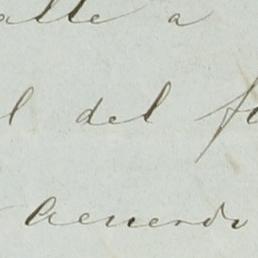 alle a
l del
Acuerdo